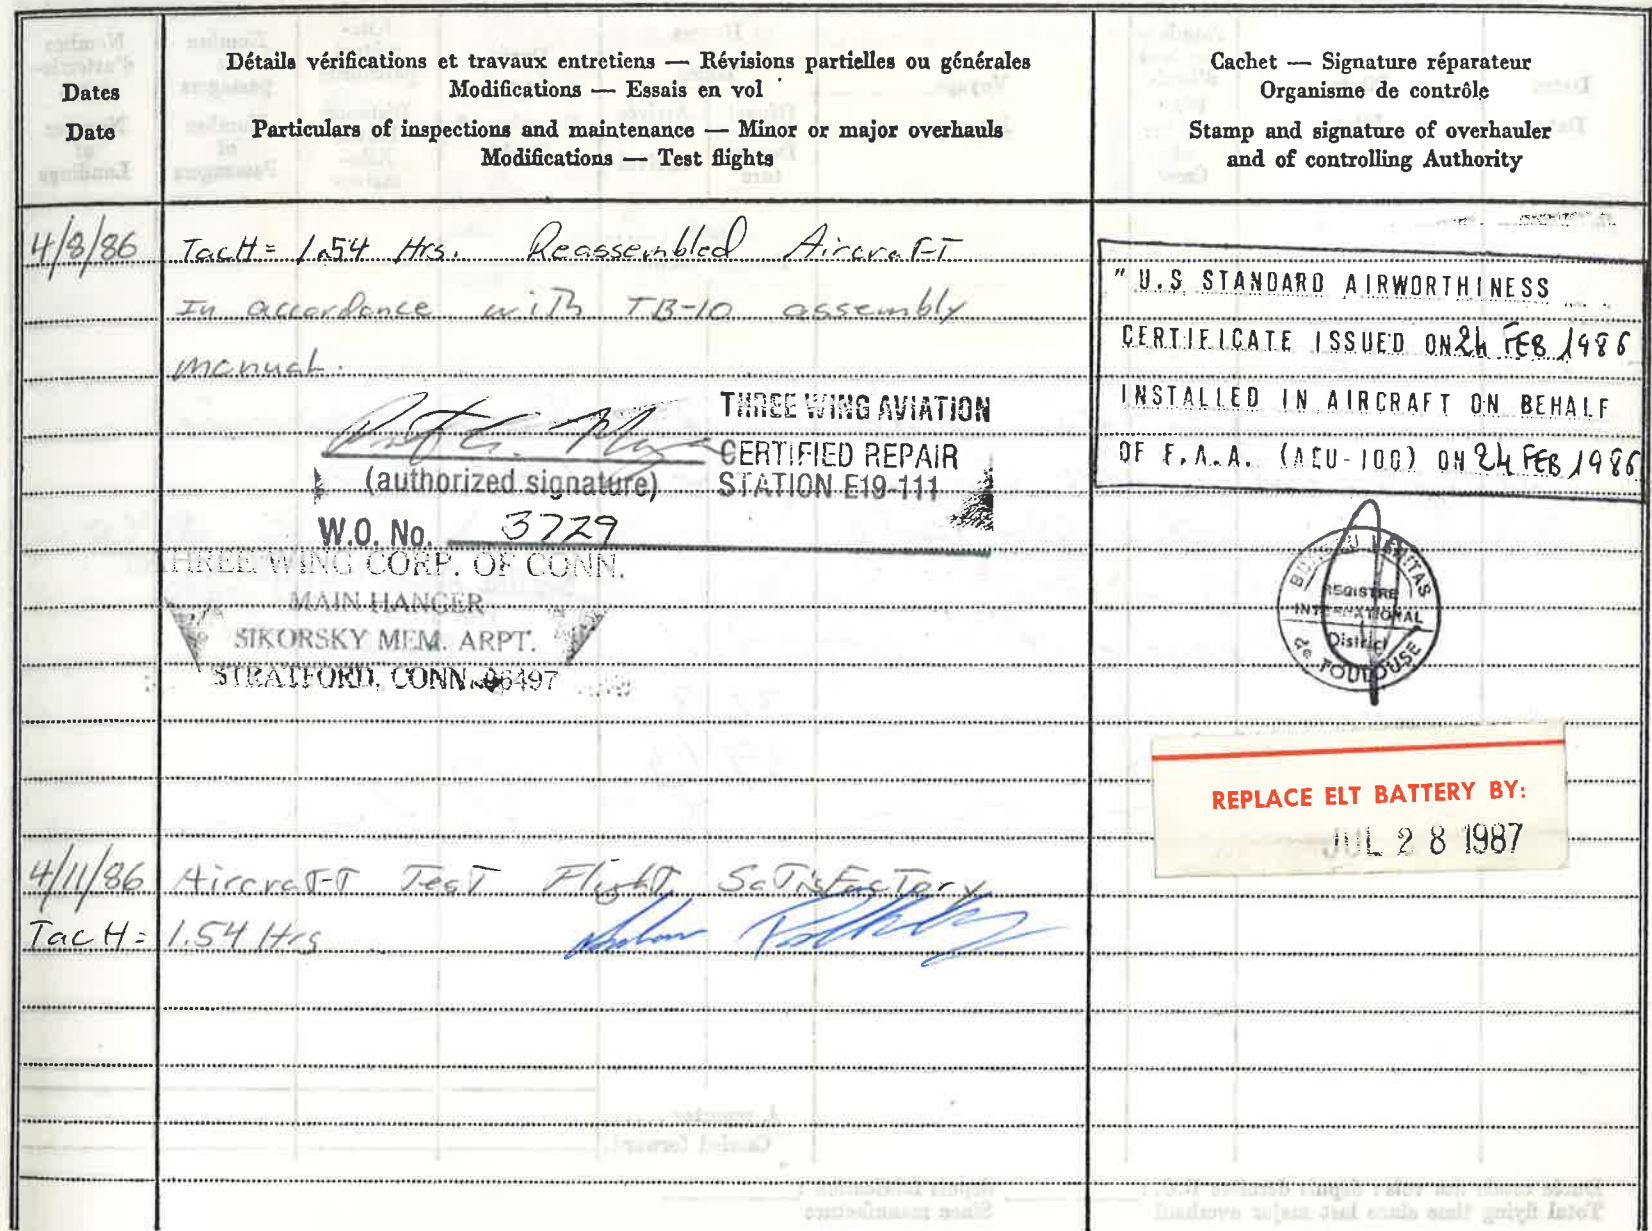 Dates
Date
Détails vérifications et travaux entretiens — Révisions partielles ou générales
Modifications — Essais en vol
Particulars of inspections and maintenance — Minor or major overhauls
Modifications — Test flights
Cachet — Signature réparateur
Organisme de contrôle
Stamp and signature of overhauler
and of controlling Authority
4/8/86 TacH= 1.54 Hrs. Reassembled AircraFT
In accordance with TB-10 assembly
manual.
THREE WING AVIATION
CERTIFIED REPAIR
(authorized signature) STATION E19-111
W.O. No. 3729
THREE WING CORP. OF CONN.
MAIN HANGER
SIKORSKY MEM. ARPT.
STRATFORD, CONN. 06497
" U.S. STANDARD AIRWORTHINESS
CERTIFICATE ISSUED ON 24 FEB 1986
INSTALLED IN AIRCRAFT ON BEHALF
OF F.A.A. (AEU-100) ON 24 FEB 1986
BUREAU VERITAS
REGISTRE
INTERNATIONAL
District
de TOULOUSE
REPLACE ELT BATTERY BY:
JUL 28 1987
4/11/86 AircraFT TesT FlighT SaTisFacTory
TacH= 1.54 Hrs